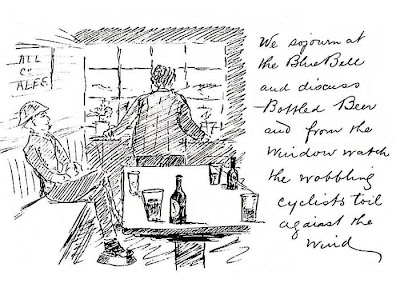 ALL
Co
ALES
We sojourn at
the Blue Bell
and discuss
Bottled Beer
and from the
Window watch
the wobbling
cyclists toil
against the
Wind